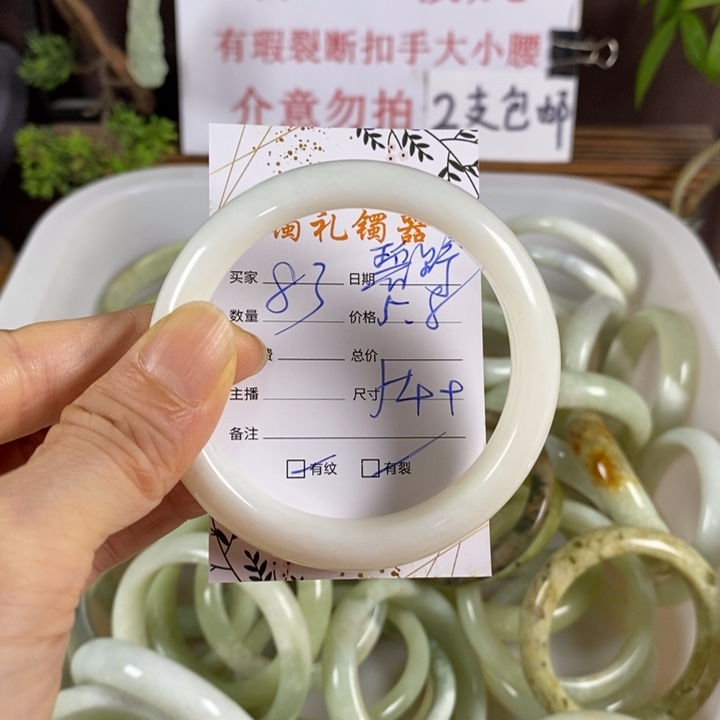 有瑕裂断扣手大小腰
介意勿拍 2支包邮
礼镯器
买家 83 日期
数量 价格 5.8
费 总价
主播 尺寸 54++
备注
有纹 有裂